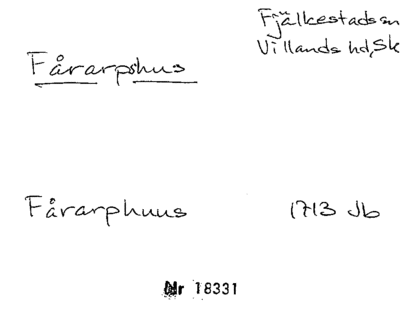 Fjälkestads sn
Villands hd, Sk
Fårarpshus
Fårarphuus 1713 Jb
Nr 18331